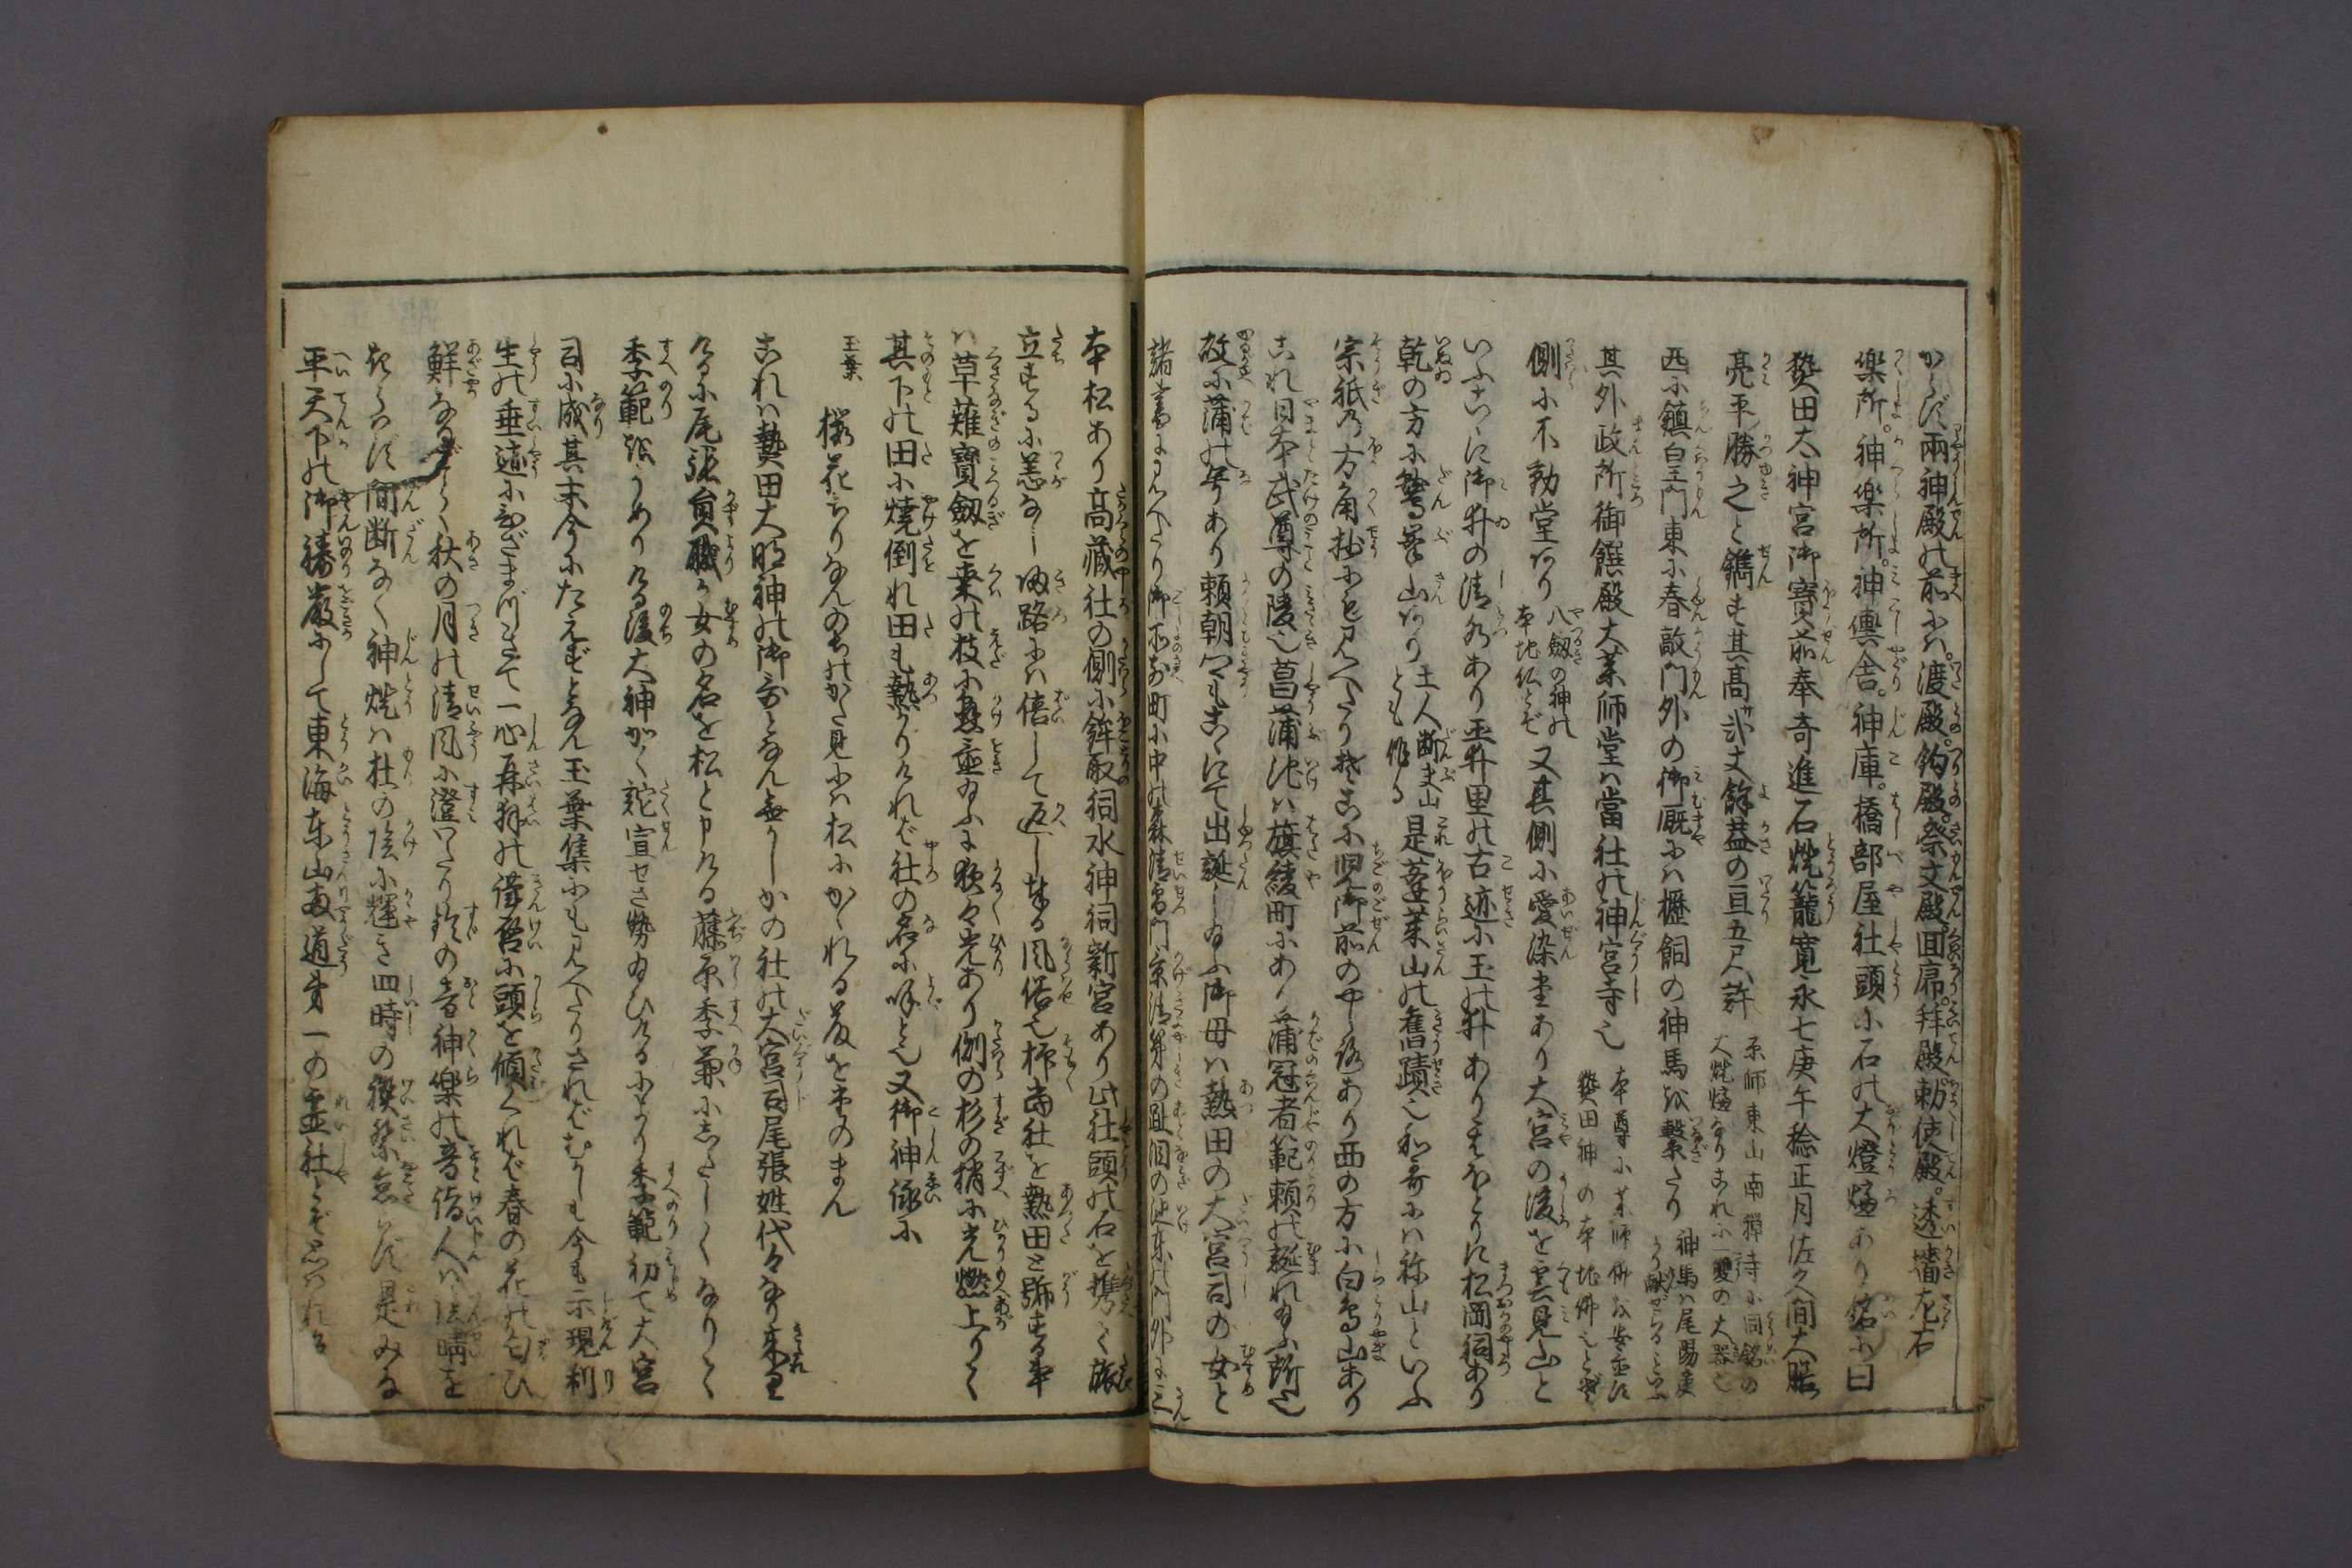 からず兩神殿の前には。渡殿。釣殿。祭文殿。回廊。拜殿。勅使殿。透墻。左右
樂所。神樂所。神輿舎。神庫。橋部屋社頭に石の大燈爐あり銘に曰
𤍠田大神宮御寶前奉寄進石燈籠寛永七庚午稔正月佐久間大膳
亮平勝之と鐫す其高サ弐丈餘蓋の亘五尺許
京師東山南禪寺に同銘の
大燈爐ありまれに一雙の大器也
西に鎮皇門東に春敲門外の御厩には櫪飼の神馬を繫たり
神馬は尾陽君
より献ぜらるといふ
其外政所御饌殿大藥師堂は當社の神宮寺也
本尊に藥師佛を安置
𤍠田神の本地佛也とぞ
側に不動堂あり
八劔の神の
本地仏とぞ
又其側に愛染堂あり大宮の後を雲見山と
いふこゝに御井の清水あり玉井里の古迹に玉の井ありそのほとりに松岡祠あり
乾の方に鷲峯山あり
土人断夫山
とも作る
是蓬莱山の舊蹟也和哥には称山といふ
宗祇の方角抄にも見へたり其に児御前のやしろあり西の方に白鳥山あり
これ日本武尊の陵也菖蒲池は旗綾町にあり蒲冠者範頼の誕れ給ふ所也
故に蒲の号あり頼朝公もこゝにて出誕し給ふ御母は熱田の大宮司の女と
諸書に見へたり御所前町に中の森清雪門景清第の趾
本松あり高藏社の側に鉾取祠水神祠新宮あり此社頭の石を携て旅
立するに恙なし歸路には倍して返し奉る風俗也抑當社を熱田と號する事
は草薙寶劔を桒の枝に懸置給ふに赫々光あり側の杉の梢に光燃上りて
其下の田に燒倒れ田も熱かりければ社の名に呼と也又御神詠に
玉葉
櫻花ちりなんのちのかた見には松にかゝれる藤をたのまん
これは熱田大明神の御哥となん無かしかの社の大宮司尾張姓代々なり來
けるに尾張員職が女の名を松と申ける藤原季兼にしたしくなりて
季範をうめりける後大神かく託宣せさせ給ひけるにより季範初て大宮
司に成其末今にたえずとなん玉葉集にも見へたりさればむかしも今も示現利
生の垂迹にかざまづきて一心再拜の信啓に頭を傾くれば春の花の匂ひ
鮮なるべく秋の月の清風に澄わたり鈴の音神樂の音
たらず間断なく神燈は杜の陰に輝き四時の饌祭怠らず是みな
平天下の御祷嚴にして東海東山両道第一の霊社とぞ思はれる